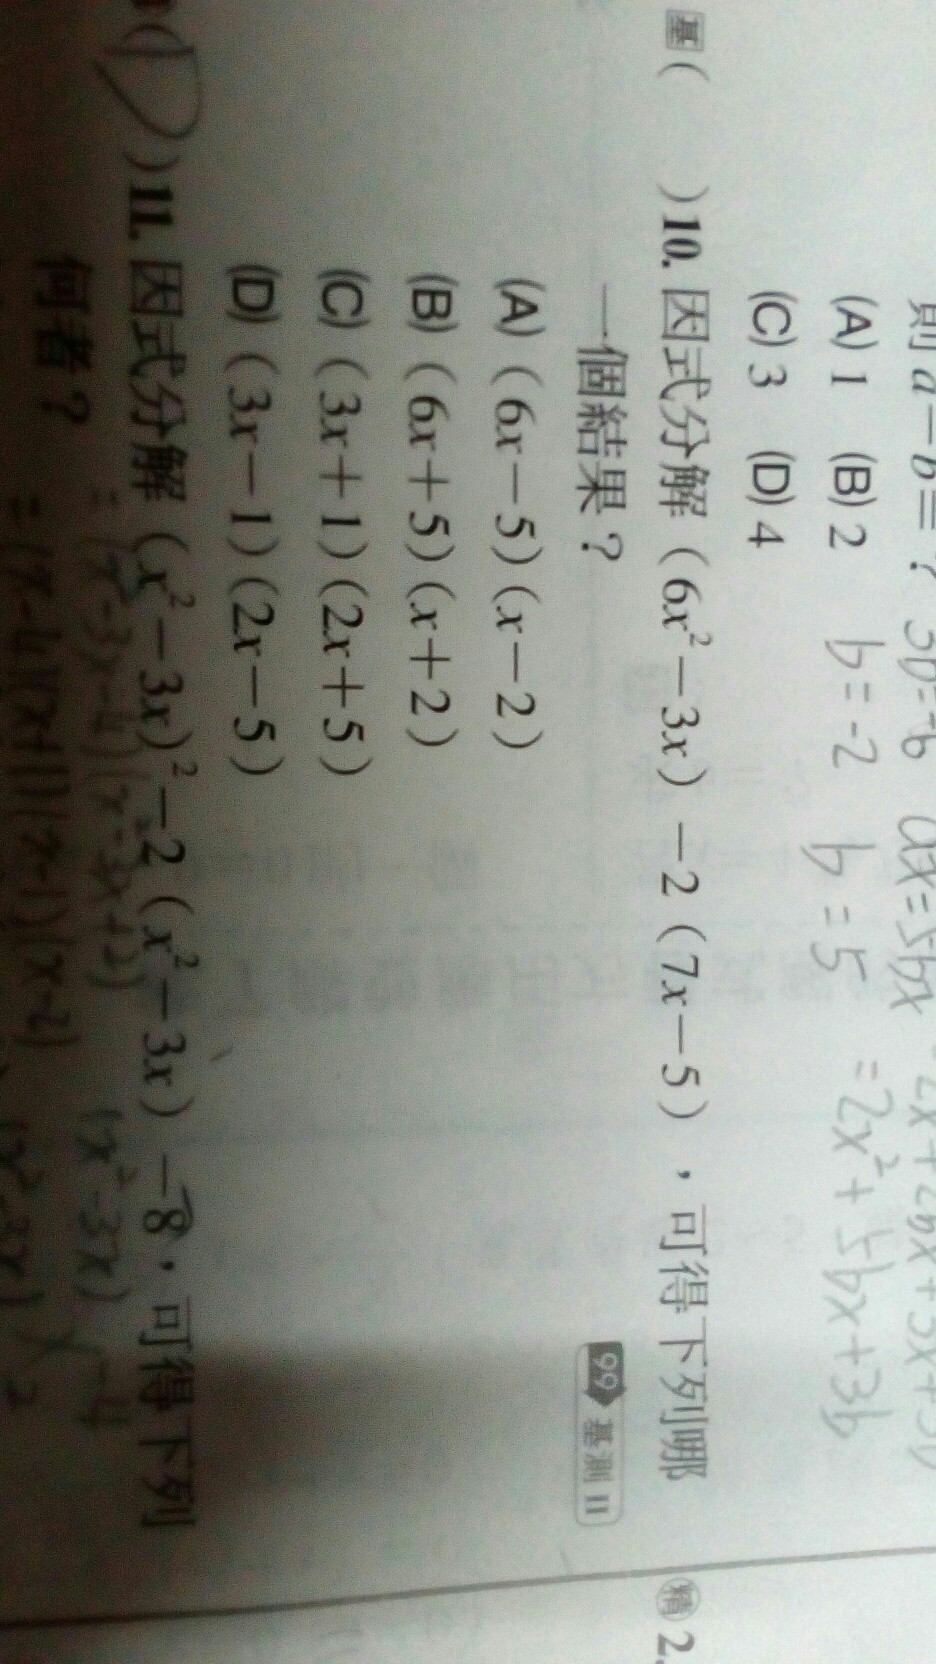 則 a－b＝？ 5b=-6 ax=5bx
(A) 1 (B) 2 b=-2 b=5 =2x²+5bx+3b
(C) 3 (D) 4
基（ ）10. 因式分解（6x²－3x）－2（7x－5），可得下列哪
一個結果？ 99 基測 II
(A)（6x－5）（x－2）
(B)（6x＋5）（x＋2）
(C)（3x＋1）（2x＋5）
(D)（3x－1）（2x－5）
（D）11. 因式分解（x²－3x）²－2（x²－3x）－8，可得下列
何者？ =(x²-3x-4)(x²-3x+2) (x²-3x) -4
=(x-4)(x+1)(x-1)(x-2) (x²-3x) 2
精 2.